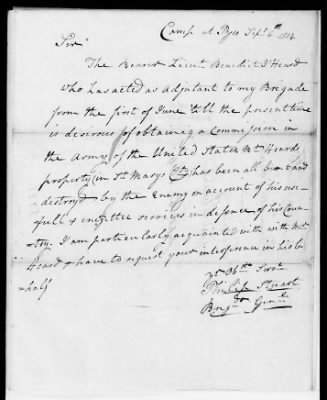 Camp at Pyes Sepr 6th 1814
Sir
The Bearer Lieut. Benedict I Heard
who has acted as adjutant to my Brigade
from the first of June till the present time
is desirous of obtaining a Commission in
the Army of the United States Mr Heards
property in St Marys Cty has been all and
destroyd by the Enemy on account of his use-
full & services in defence of his Coun-
-try. I am perticularly acquainted with with Mr.
Heard & have to request your interference in his be
=half
yr Obt. Servt.
Philip Stuart
Brigr Genl.